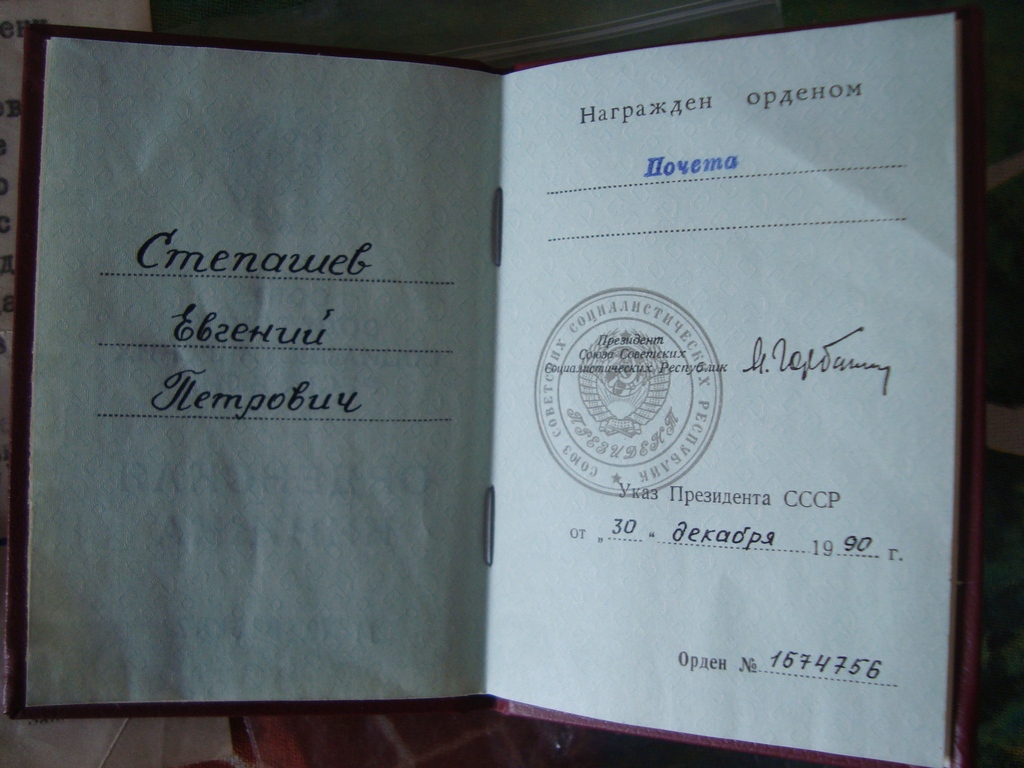 Степашев
Евгений
Петрович
Награжден орденом
Почета
СОЮЗ СОВЕТСКИХ СОЦИАЛИСТИЧЕСКИХ РЕСПУБЛИК
ПРЕЗИДЕНТ
Президент
Союза Советских
Социалистических Республик
М. Горбачев
Указ Президента СССР
от „30“ декабря 1990 г.
Орден № 1574756